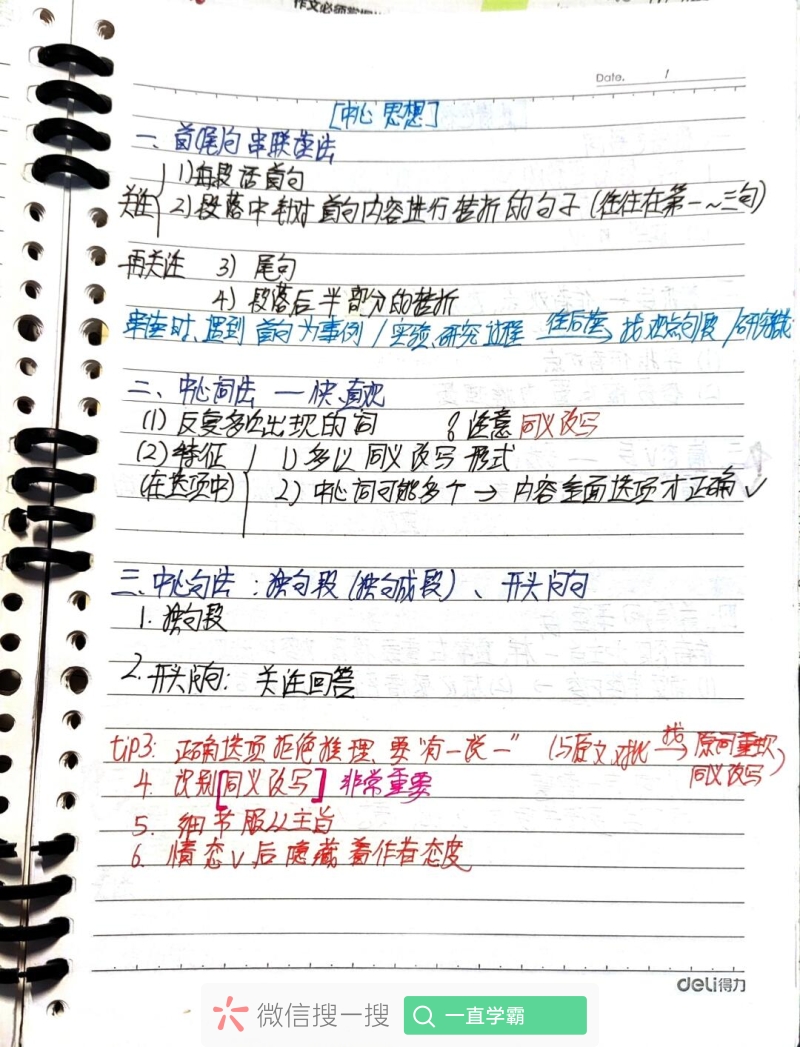 Date. /
[中心思想]
一、首尾句串联读法
1)每段话首句
关注 2)段落中针对首句内容进行转折的句子(往往在第一~三句)
再关注 3)尾句
4)段落后半部分的转折
串读时,遇到首句为事例/实验、研究过程 往后读→找观点句段/研究
二、中心词法 — 快、直观
(1)反复多次出现的词 注意同义改写
(2)特征 1)多以同义改写形式
(在选项中) 2)中心词可能多个→内容全面选项才正确✓
三、中心句法:独句段(独句成段)、开头问句
1.独句段
2.开头问句:关注回答
tip3:正确选项拒绝推理,要"有一说一"(与原文对比 找→原词重现,
同义改写)
4.识别[同义改写]非常重要
5.细节服从主旨
6.情态v后隐藏着作者态度
deli得力
微信搜一搜 一直学霸